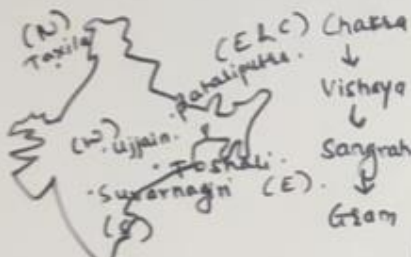 (N)
Taxila
(E & C)
Pataliputra.
(W) Ujjain.
Toshali.
Suvarnagiri (E).
(S)
Chakra
↓
Vishaya
↓
Sangrah
↓
Gram